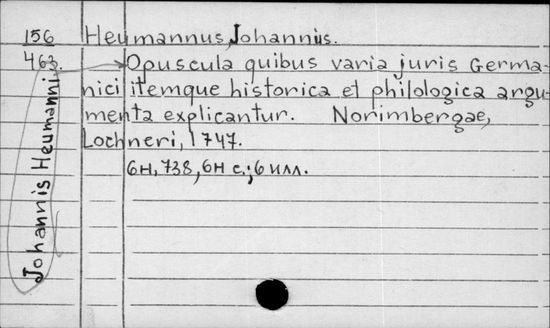 156 Heumannus, Johannus.
463. Opuscula quibus varia juris Germa-
nici itemque historica et philologica argu-
menta explicantur. Norimbergae,
Lochneri, 1747.
6н, 738, 6н с.; 6 илл.
Johannis Heumanni